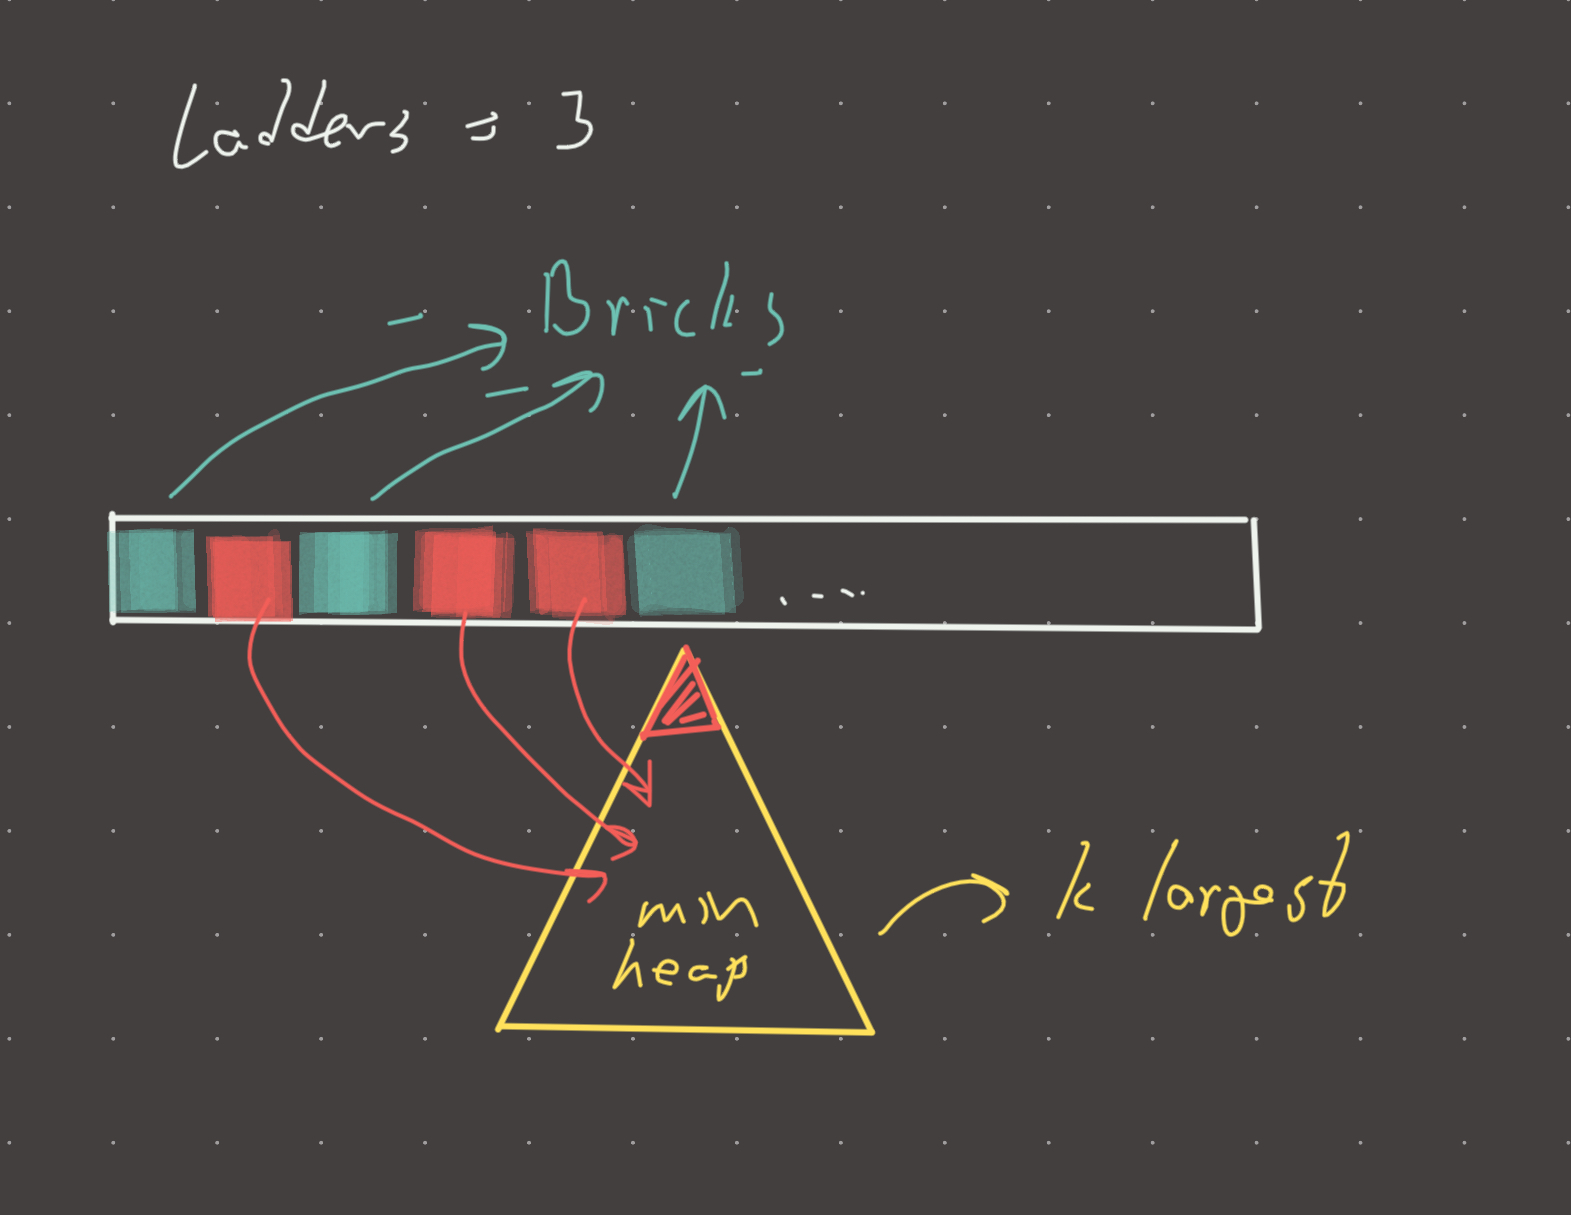 Ladders = 3
Bricks
min
heap
k largest